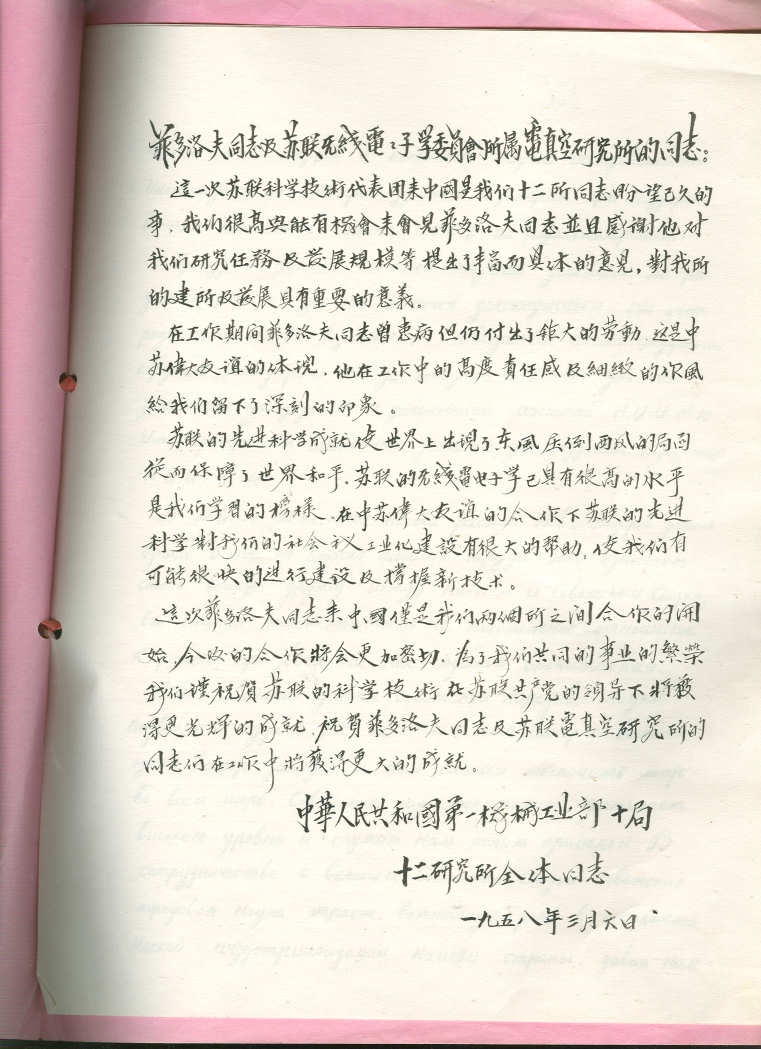 菲多洛夫同志及苏联无线電电子学委員會所属電真空研究所的同志：
這一次苏联科学技術代表团来中國是我们十二所同志盼望已久的
事，我们很高兴能有机會来會見菲多洛夫同志並且感谢他对
我们研究任務及發展規模等提出了丰富而具体的意見，對我所
的建所及發展具有重要的意義。
在工作期间菲多洛夫同志曾患病但仍付出了鉅大的劳動，这是中
苏偉大友谊的体現，他在工作中的高度責任感及細緻的作風
給我们留下了深刻的印象。
苏联的先进科学成就使世界上出現了东風压倒西风的局面
從而保障了世界和平，苏联的无綫電电子学已具有很高的水平
是我们学習的榜樣，在中苏偉大友谊的合作下苏联的先进
科学對我们的社会主义工业化建設有很大的帮助，使我们有
可能很快的进行建設及掌握新技术。
這次菲多洛夫同志来中國僅是我们两個所之间合作的開
始，今后的合作將会更加密切，為了我们共同的事业的繁榮
我们謹祝賀苏联的科学技術在苏联共产党的領导下將獲
得更光輝的成就，祝賀菲多洛夫同志及苏联電真空研究所的
同志们在工作中将獲得更大的成就。
中華人民共和國第一機械工业部十局
十二研究所全体同志
一九五八年三月六日